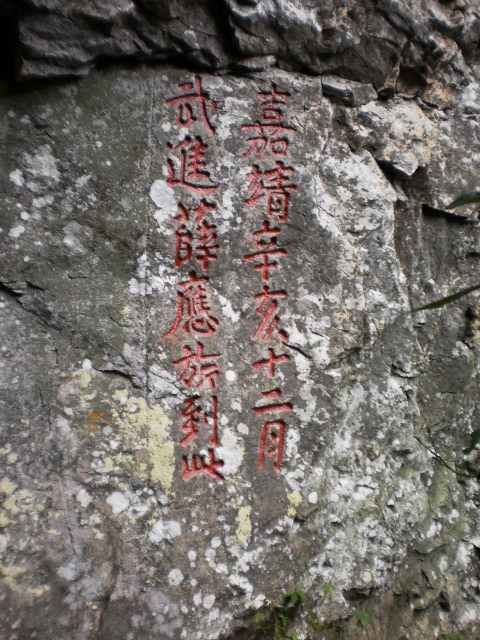 嘉靖辛亥十二月
武進薛應旂到此